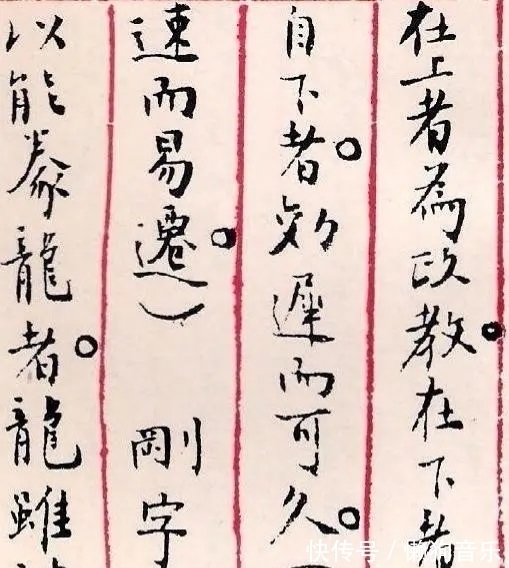 在上者為政教。在下者
自下者。効遲而可久。
速而易遷。） 剛字
以能豢龍者。龍雖
快传号 / 音乐